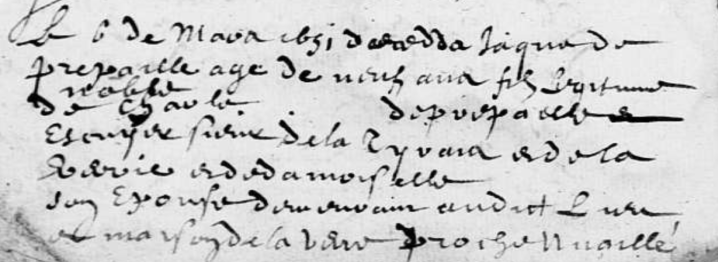 Le 6 de Mars 1651 deceddа Jaque de
prepaille age de neuf ans fils legitime
noble
de Charle deprepaille
Escuyer sieur de la et de la
et de damoiselle
son Epouse demeurant audict Lieu
et maison de la proche Nuaillé